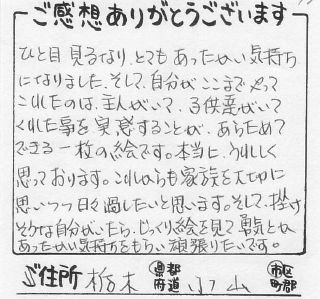 ご感想ありがとうございます
ひと目見るなり、とてもあったかい気持ち
になりました。そして、自分がここまでやって
これたのは、主人がいて、子供達がいて
くれた事を実感することが、あらためて
できる一枚の絵です。本当に、うれしく
思っております。これからも家族を大切に
思いつつ日々過したいと思います。そして、挫け
そうな自分がいたら、じっくり絵を見て勇気とか
あったかい気持ちをもらい頑張りたいです。
ご住所 栃木 都道府県 小山 市区町郡